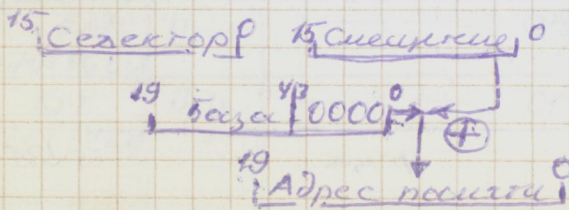 15 Селектор 0 15 Смещение 0
19 База 43 0000 0
+
19 Адрес памяти 0